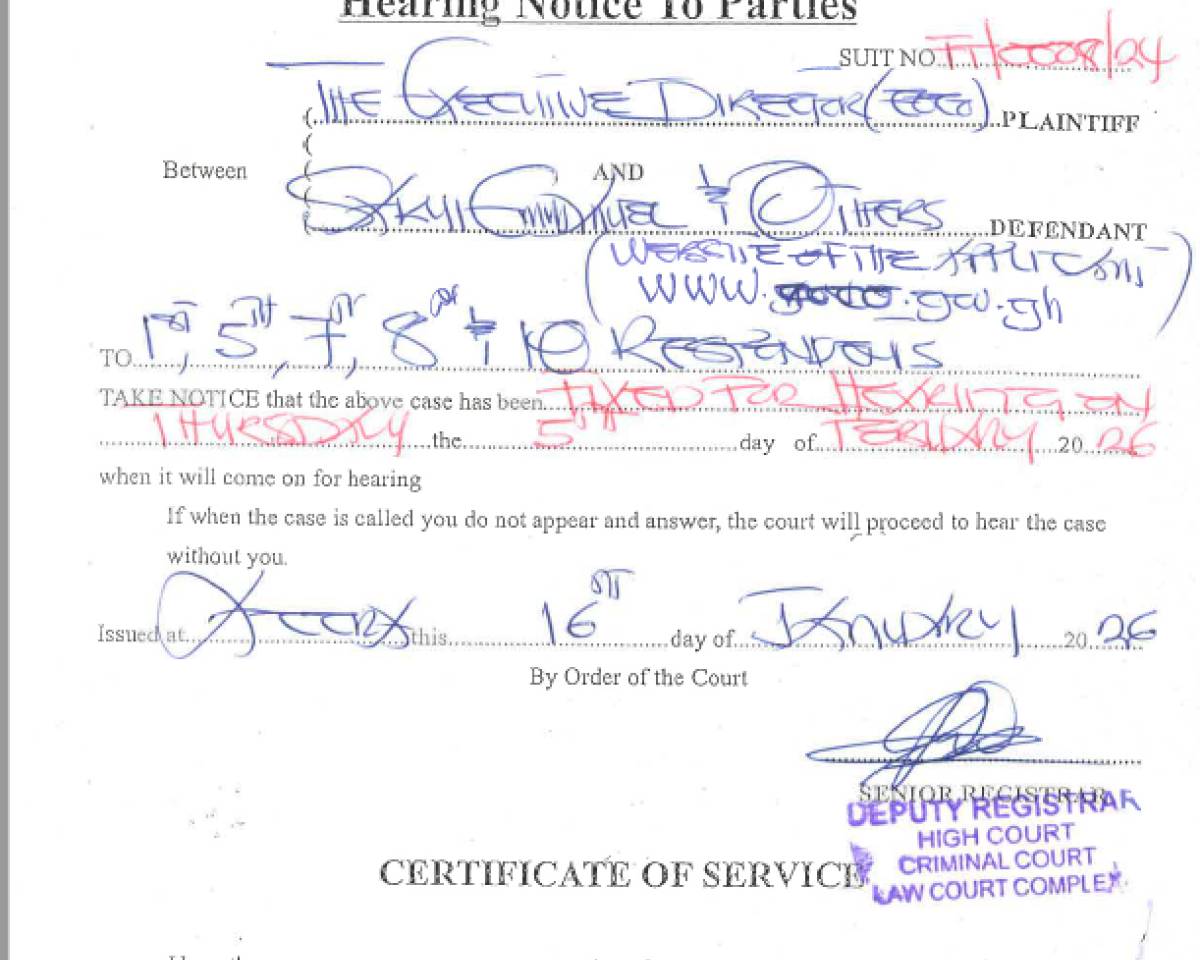 Hearing Notice To Parties
SUIT NO. TT/0008/24
THE EXECUTIVE DIRECTOR (EOCO) PLAINTIFF
Between AND
EMMANUEL & OTHERS DEFENDANT
(WEBSITE OF THE APPLICANT
WWW. .gov.gh)
TO 1ST, 5TH, 7TH, 8TH & 10 RESPONDENTS
TAKE NOTICE that the above case has been FIXED FOR HEARING ON
THURSDAY the 5TH day of FEBRUARY 2026
when it will come on for hearing
If when the case is called you do not appear and answer, the court will proceed to hear the case
without you.
Issued at ACCRA this 16TH day of JANUARY 2026
By Order of the Court
SENIOR REGISTRAR
DEPUTY REGISTRAR
HIGH COURT
CRIMINAL COURT
LAW COURT COMPLEX
CERTIFICATE OF SERVICE